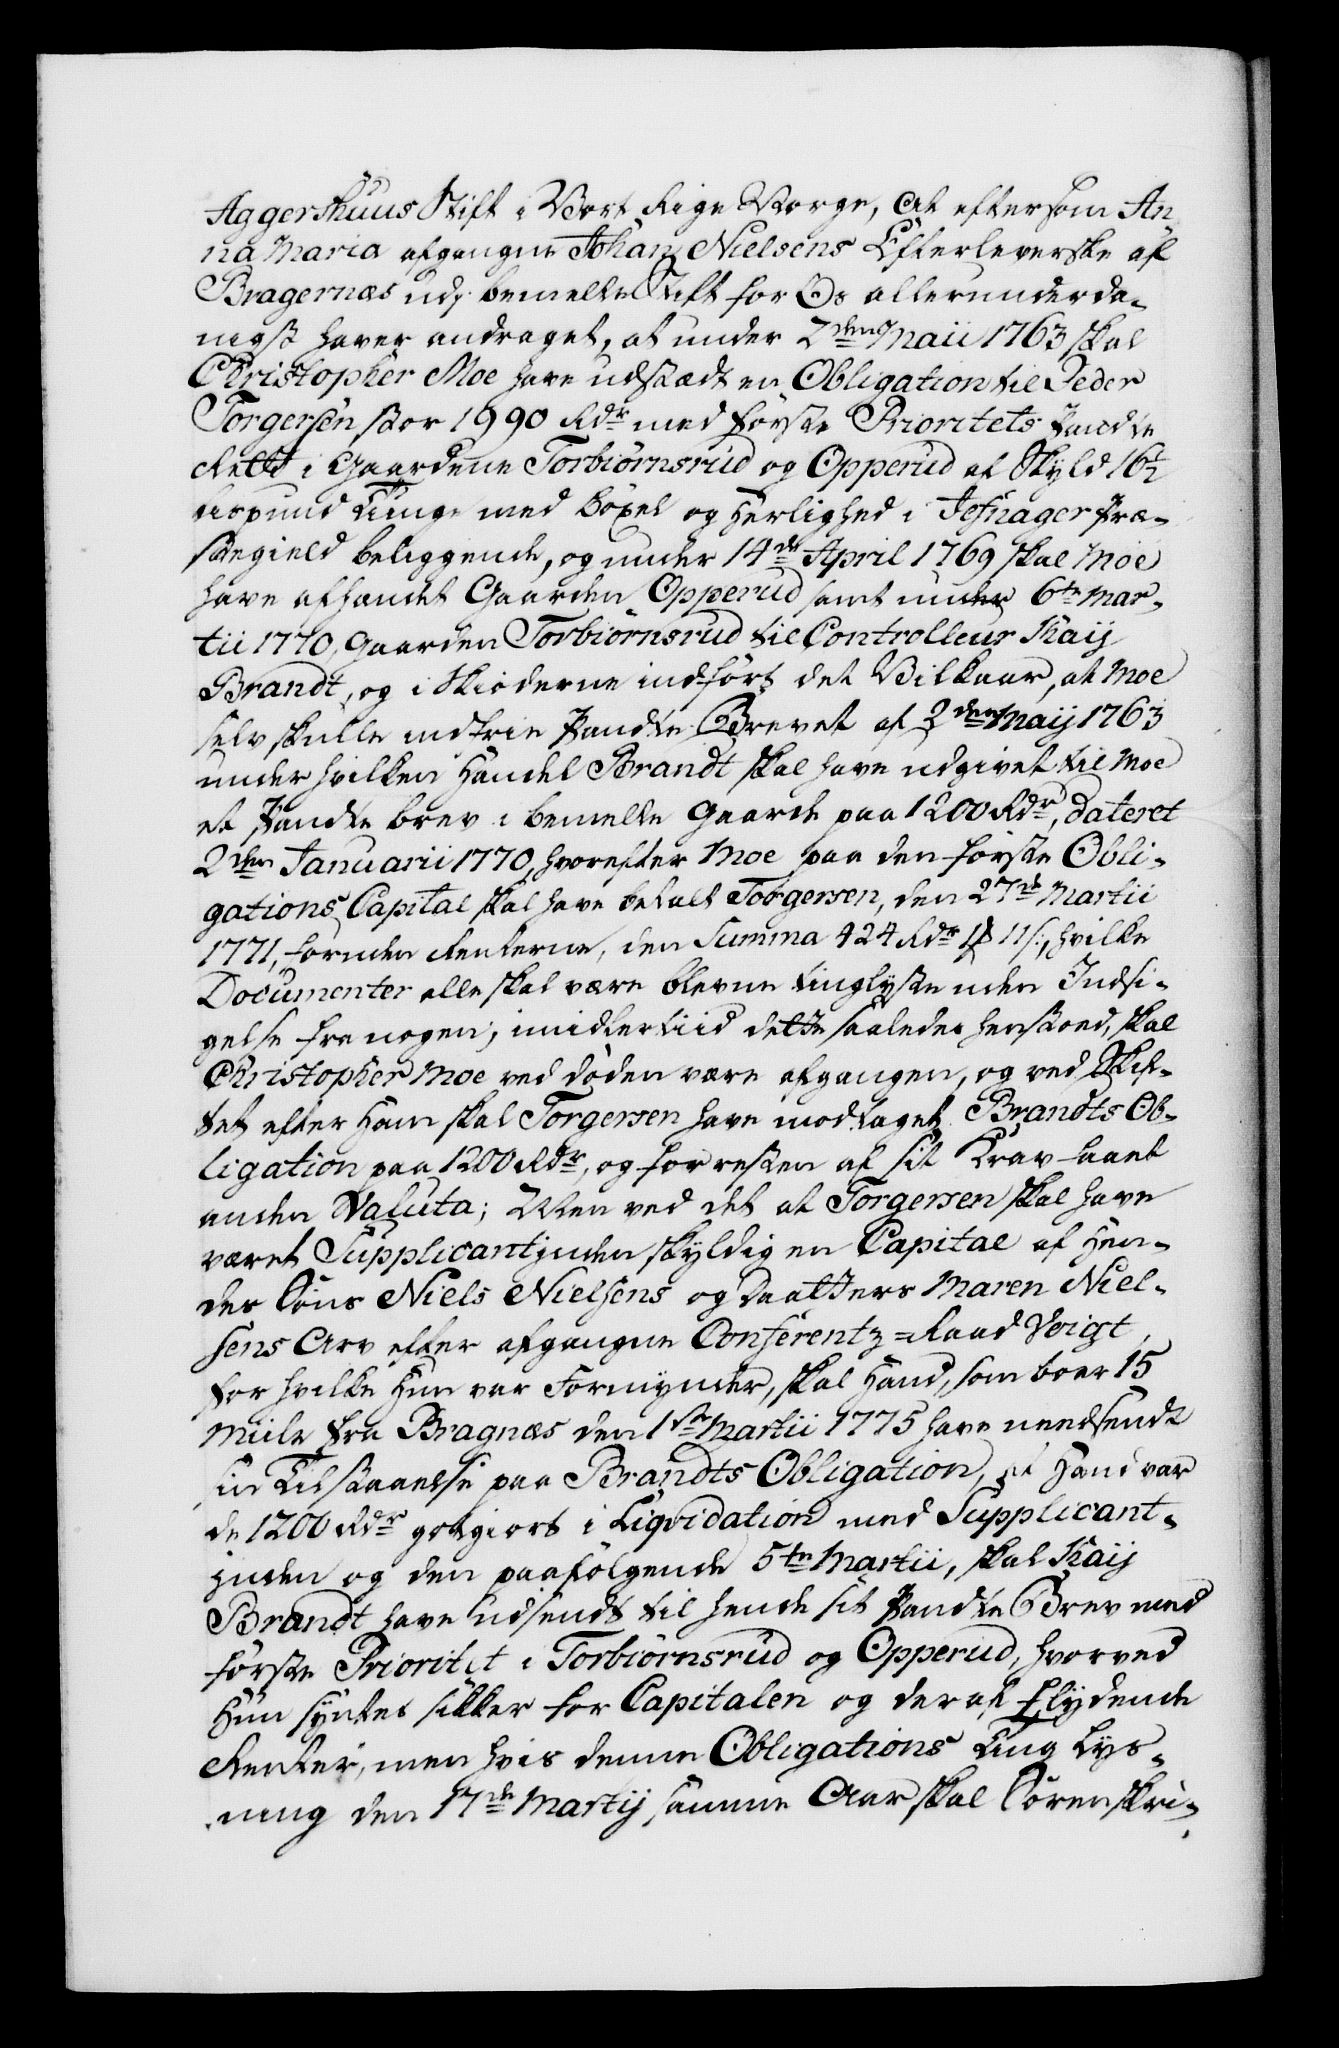 Aggershuus Stift i Vort Rige Norge, At eftersom An
na Maria afgangne Johan Nielsens Efterleverske af
Bragernæs udj bemelte Stift for Os allerunderda-
nigst haver andraget, at under 2den Maii 1763 skal
Christopher Moe have udstædt en Obligation til Peder
Torgersen stor 1990 Rdr med første Prioritets Pandte
Rett i Gaardene Torbiørnsrud og Opperud af Skyld 16½
Lispund Tunge med Bøxel og Herlighed i Jefnager Præ-
stegield beliggende, og under 14de April 1769 skal Moe
have afhændet Gaarden Opperud samt under 6te Mar-
tii 1770, Gaarden Torbiørnsrud til Controlleur Kaij
Brandt, og i Skiøderne indført det Vilkaar, at Moe
selv skulle indfrie Pandte Brevet af 2den Maij 1763
under hvilken Handel Brandt skal have udgivet til Moe
et Pandte brev i bemelte Gaarde paa 1200 Rdr, dateret
2den Januarii 1770, hvorefter Moe paa den første Obli-
gations Capital skal have betalt Torgersen, den 27de Martii
1771, foruden Renterne, den Summa 424 Rdr 1 11 s:, hvilke
Documenter alle skal være blevne tinglyste uden Indsi-
gelse fra nogen; imidlertiid dette saaledes henstoed, skal
Christopher Moe ved døden være afgangen, og ved Skif-
tet efter Ham skal Torgersen have modtaget Brandts Ob-
ligation paa 1200 Rdr, og for resten af sit Krav faaet
anden Valuta; Men ved det at Torgersen skal have
været Supplicantjnden skyldig en Capital af Hen-
des Søns Niels Nielsens og Daatters Maren Niel-
sens Arv efter afgangne Conferentz-Raad Voigt,
for hvilke Hun var Formynder, skal Hand, som boer 15
Miile fra Bragnæs den 1ste Martii 1775 have needsendt
sin Tilstaaelse paa Brandts Obligation, at Hand var
de 1200 Rdr godgiort i Liqvidation med Supplicant-
jnden og den paafølgende 5te Martii, skal Kaij
Brandt have udsendt til hende sit Pandte Brev med
første Prioritet i Torbiørnsrud og Opperud, hvorved
Hun syntes sikker for Capitalen og deraf flydende
Renter, men hvis denne Obligations Ting Lys-
ning den 17de Martij samme Aar skal Sorenskri-